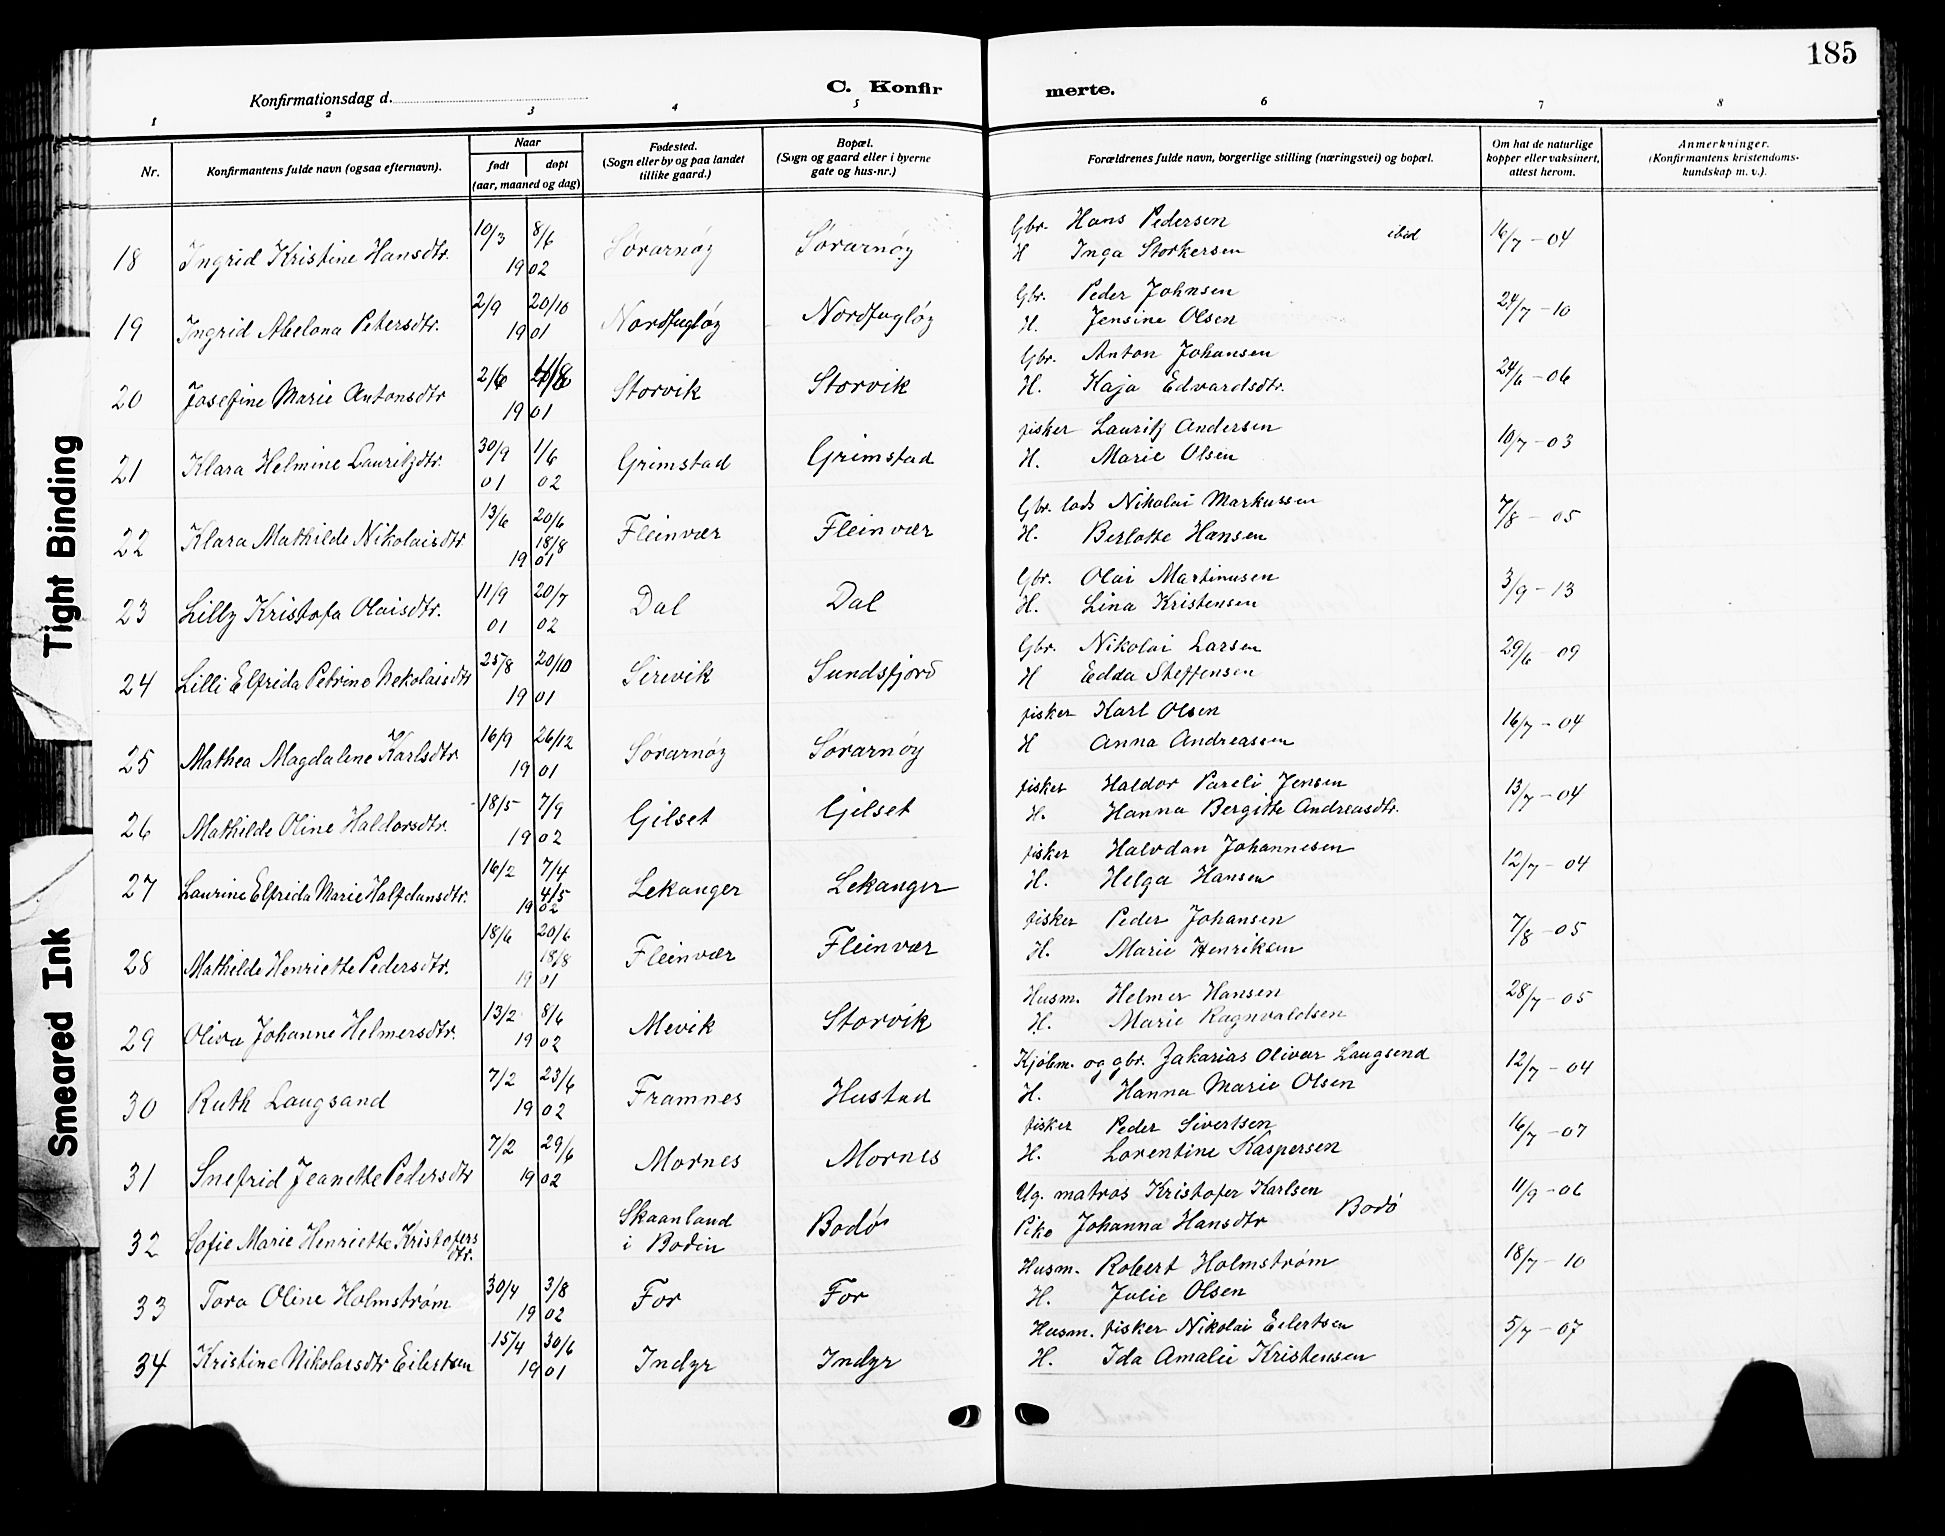 185
Konfirmationsdag d.
C. Konfir merte.
1 2 3 4 5 6 7 8
Nr.
Konfirmantens fulde navn (ogsaa efternavn).
Naar
født
døpt
(aar, maaned og dag)
Fødested.
(Sogn eller by og paa landet
tillike gaard.)
Bopæl.
(Sogn og gaard eller i byerne
gate og hus-nr.)
Forældrenes fulde navn, borgerlige stilling (næringsvei) og bopæl.
Om hat de naturlige
kopper eller vaksinert,
attest herom.
Anmerkninger.
(Konfirmantens kristendoms-
kundskap m. v.).
18 Ingrid Kristine Hansdtr. 10/3 8/6 1902 Sørarnøy Sørarnøy
Gbr. Hans Pedersen ibid 16/7 - 04
H Inga Storkersen
19 Ingrid Abelona Petersdtr. 2/9 20/10 1901 Nordfugløy Nordfugløy
Gbr. Peder Johnsen 24/7 - 10
H. Jensine Olsen
20 Josefine Marie Antonsdtr 2/6 1901 Storvik Storvik
Gbr. Anton Johansen 24/6 - 06
H. Kaja Edvardsdtr.
21 Klara Helmine Lauritzdtr. 30/9 01 1/6 02 Grimstad Grimstad
fisker Lauritz Andersen 10/7 - 03
H. Marie Olsen
22 Klara Mathilde Nikolaisdtr 13/6 20/6 18/8 1901 Fleinvær Fleinvær
Gbr. lods Nikolai Markussen 7/8 - 05
H. Berlotte Hansen
23 Lilly Kristofa Olaisdtr. 11/9 01 20/7 02 Dal Dal
Gbr. Olai Martinusen 3/9 - 13
H. Lina Kristensen
24 Lilli Elfrida Petrine Nekolaisdtr 25/8 20/10 1901 Sirevik Sundsfjord
Gbr. Nikolai Larsen 29/6 - 09
H Edda Steffensen
25 Mathea Magdalene Karlsdtr 16/9 26/12 1901 Sørarnøy Sørarnøy
fisker Karl Olsen 16/7 - 04
H Anna Andreassen
26 Mathilde Oline Haldorsdtr. 18/5 7/9 1902 Gilset Gjelset
fisker Haldor Pareli Jensen 13/7 - 04
H. Hanna Bergitte Andreasdtr.
27 Laurine Elfrida Marie Halfdansdtr. 16/2 7/4 4/5 1902 Lekanger Lekanger
fisker Halvdan Johannesen 12/7 - 04
H. Helga Hansen
28 Mathilde Henriette Pedersdtr. 18/6 20/6 18/8 1901 Fleinvær Fleinvær
fisker Peder Johansen 7/8 - 05
H. Marie Henriksen
29 Oliva Johanne Helmersdtr. 13/2 8/6 1902 Mevik Storvik
Husm. Helmer Hansen 28/7 - 05
H. Marie Ragnvaldsen
30 Ruth Laugsand 7/2 23/6 1902 Framnes Hustad
Kjøbm. og gbr. Zakarias Olivar Laugsend 12/7 - 04
H. Hanna Marie Olsen
31 Snefrid Jeanette Pedersdtr 7/2 29/6 1902 Mornes Mornes
fisker Peder Sivertsen 16/7 - 07
H. Lorentine Kaspersen
32 Sofie Marie Henriette Kristofers
dtr. Skaanland
i Bodin Bodø
Ug. matros Kristofer Karlsen 11/9 - 06
Pike Johanna Hansdtr Bodø
33 Tora Oline Holmstrøm 30/4 3/8 1902 For For
Husm. Robert Holmstrøm 18/7 - 10
H. Julie Olsen
34 Kristine Nikolaisdtr Eilertsen 15/4 30/6 1901 Indyr Indyr
Husm. fisker Nikolai Eilertsen 5/7 - 07
H. Ida Amalie Kristensen
Tight Binding
Smeared Ink